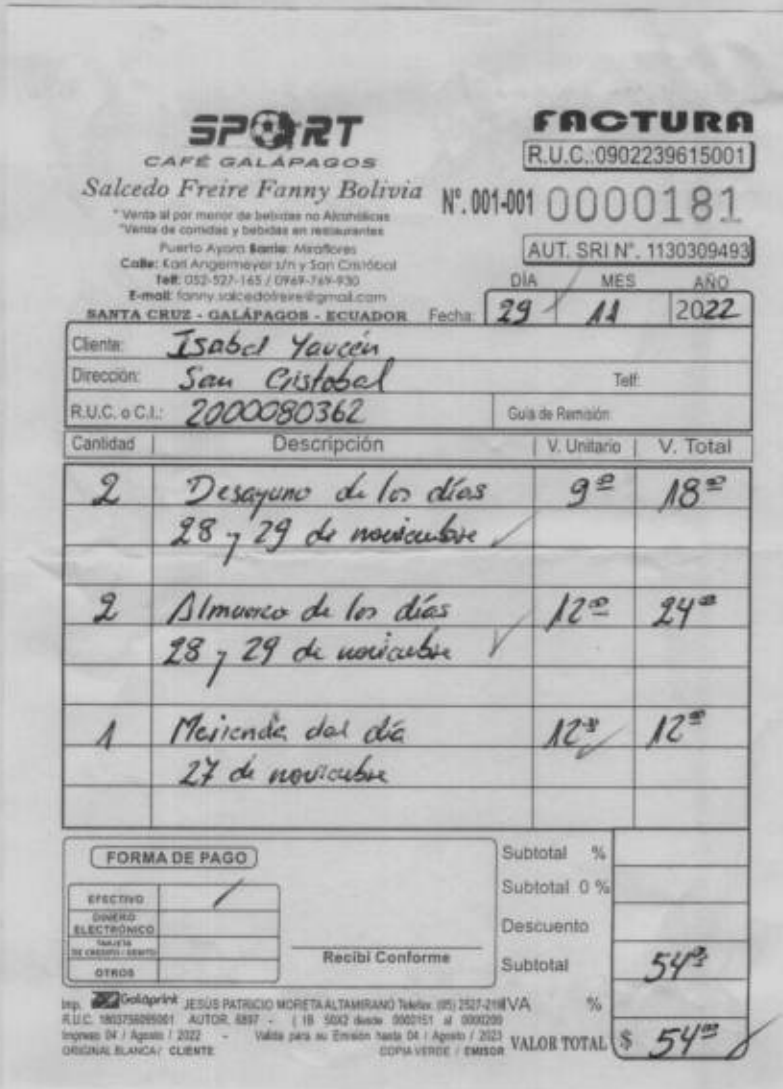 SPORT
CAFÉ GALÁPAGOS
Salcedo Freire Fanny Bolivia
* Venta al por menor de bebidas no Alcohólicas
*Venta de comidas y bebidas en restaurantes
Puerto Ayora Barrio: Miraflores
Calle: Karl Angermeyer s/n y San Cristóbal
Telf: 052-527-165 / 0969-769-930
E-mail: fanny.salcedofreire@gmail.com
SANTA CRUZ - GALÁPAGOS - ECUADOR
FACTURA
R.U.C.:0902239615001
N°. 001-001 0000181
AUT. SRI N°. 1130309493
DÍA MES AÑO
Fecha: 29 11 2022
Cliente: Isabel Yaucén
Dirección: San Cristobal Telf:
R.U.C. o C.I.: 2000080362 Guía de Remisión:
Cantidad Descripción V. Unitario V. Total
2 Desayuno de los días 9 00 18 00
28 y 29 de noviembre
2 Almuerzo de los días 12 00 24 00
28 y 29 de noviembre
1 Merienda del día 12 00 12 00
27 de noviembre
FORMA DE PAGO
EFECTIVO
DINERO ELECTRÓNICO
TARJETA DE CRÉDITO / DÉBITO
OTROS
Recibí Conforme
Subtotal %
Subtotal 0 %
Descuento
Subtotal 54 00
IVA %
VALOR TOTAL $ 54 00
Imp. Galáprint JESÚS PATRICIO MORETA ALTAMIRANO Telefax: (05) 2527-219
R.U.C. 1803756095001 AUTOR. 6897 - ( 1B 50X2 desde 0000151 al 0000200
Ingreso 04 / Agosto / 2022 - Valida para su Emisión hasta 04 / Agosto / 2023
ORIGINAL BLANCA / CLIENTE COPIA VERDE / EMISOR